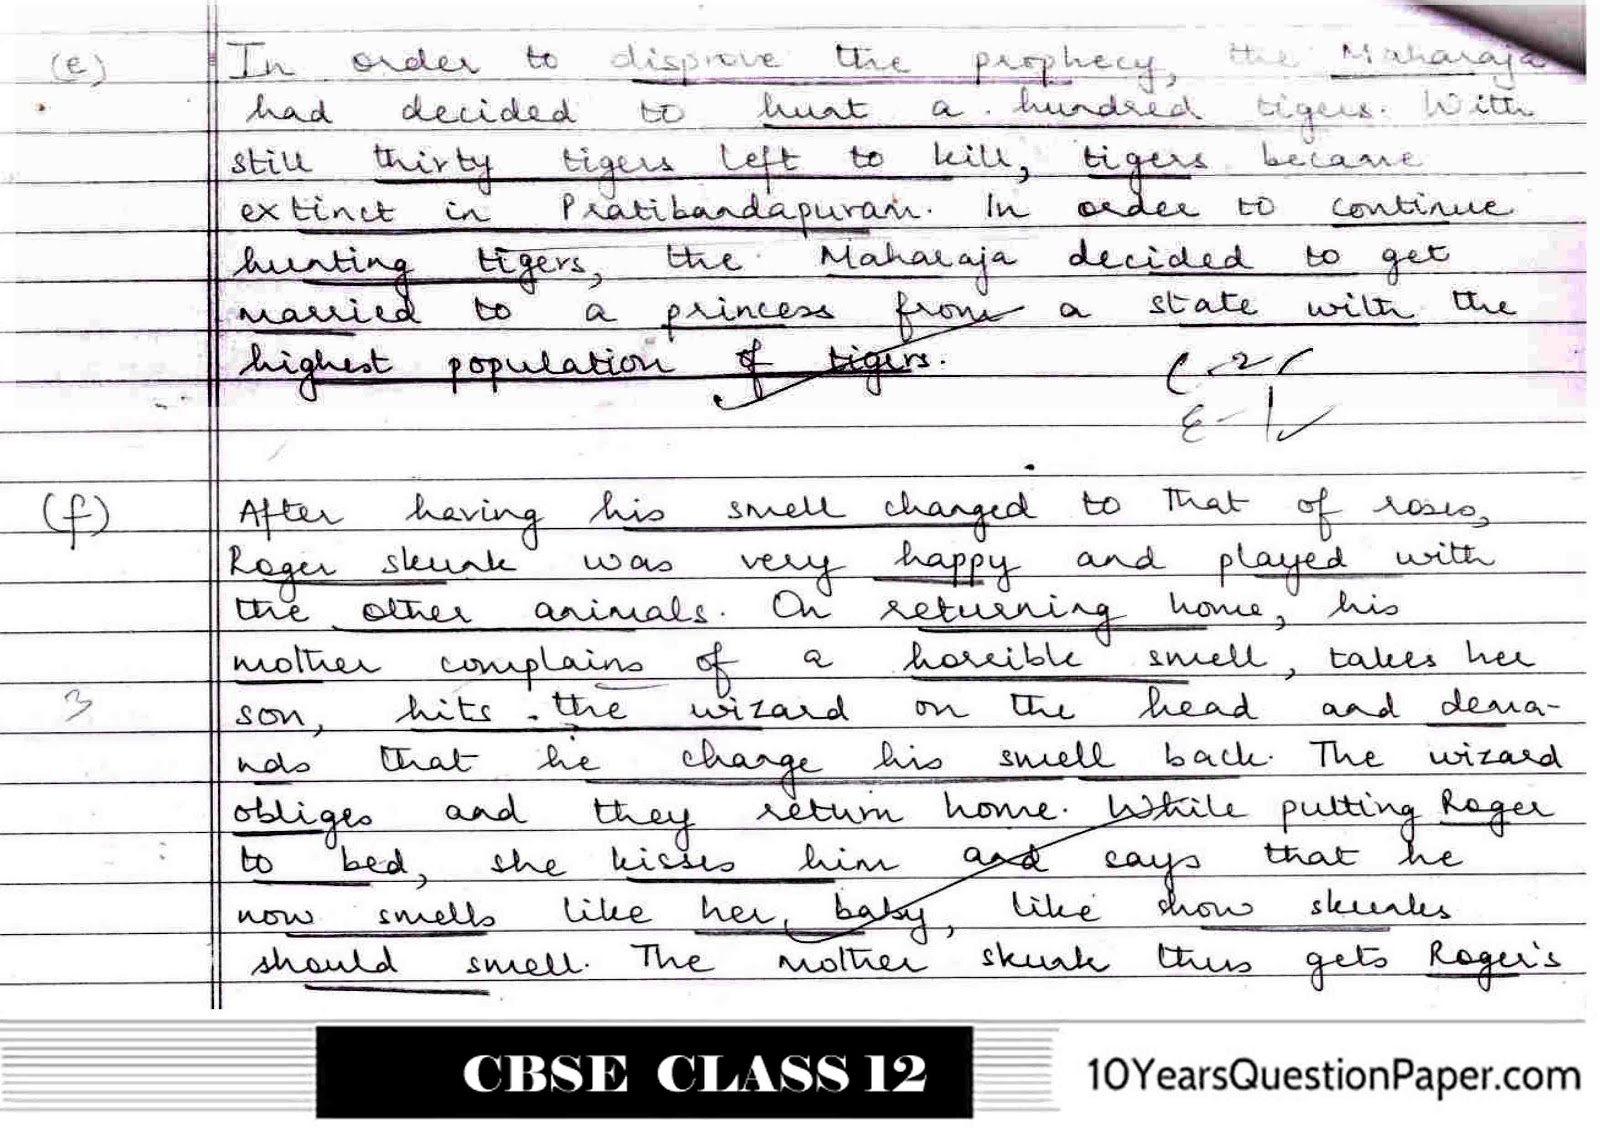 (e) In order to disprove the prophecy, the Maharaja
had decided to hunt a hundred tigers. With
still thirty tigers left to kill, tigers became
extinct in Pratibandapuram. In order to continue
hunting tigers, the Maharaja decided to get
married to a princess from a state with the
highest population of tigers.
(f) After having his smell changed to that of roses,
Roger skunk was very happy and played with
the other animals. On returning home, his
mother complains of a horrible smell, takes her
3 son, hits the wizard on the head and dema-
nds that he change his smell back. The wizard
obliges and they return home. While putting Roger
to bed, she kisses him and says that he
now smells like her, baby, like show skunks
should smell. The mother skunk thus gets Roger's
CBSE CLASS 12
10YearsQuestionPaper.com